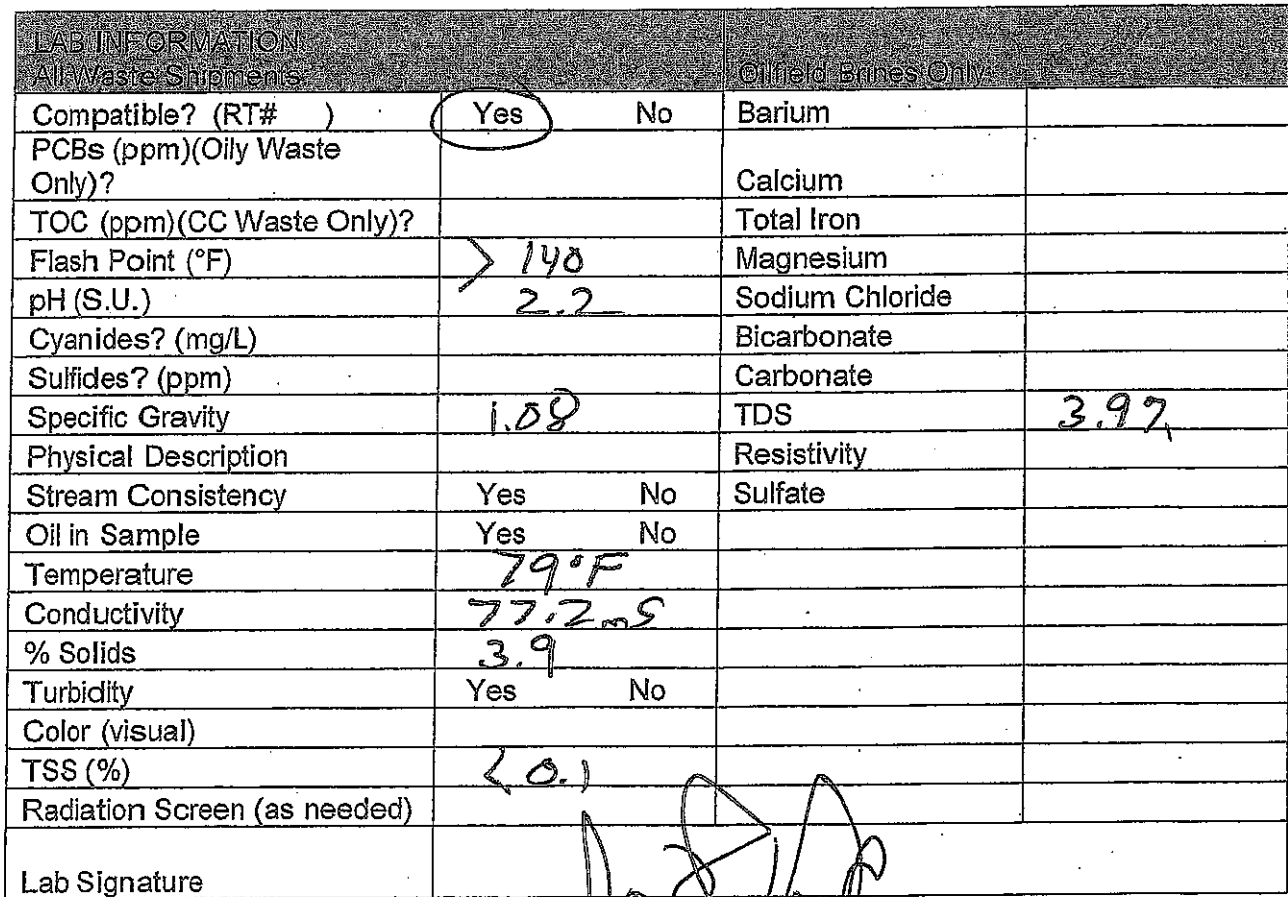 LAB INFORMATION
All Waste Shipments Oilfield Brines Only
Compatible? (RT# ) Yes No Barium
PCBs (ppm)(Oily Waste
Only)? Calcium
TOC (ppm)(CC Waste Only)? Total Iron
Flash Point (°F) > 140 Magnesium
pH (S.U.) 2.2 Sodium Chloride
Cyanides? (mg/L) Bicarbonate
Sulfides? (ppm) Carbonate
Specific Gravity 1.08 TDS
Physical Description Resistivity
Stream Consistency Yes No Sulfate
Oil in Sample Yes No
Temperature 79°F
Conductivity 77.2 mS
% Solids 3.9
Turbidity Yes No
Color (visual)
TSS (%) < 0.1
Radiation Screen (as needed)
Lab Signature